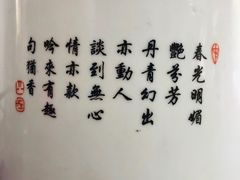 春光明媚
艷芬芳
丹青幻出
亦動人
談到無心
情亦款
吟來有趣
句猶香